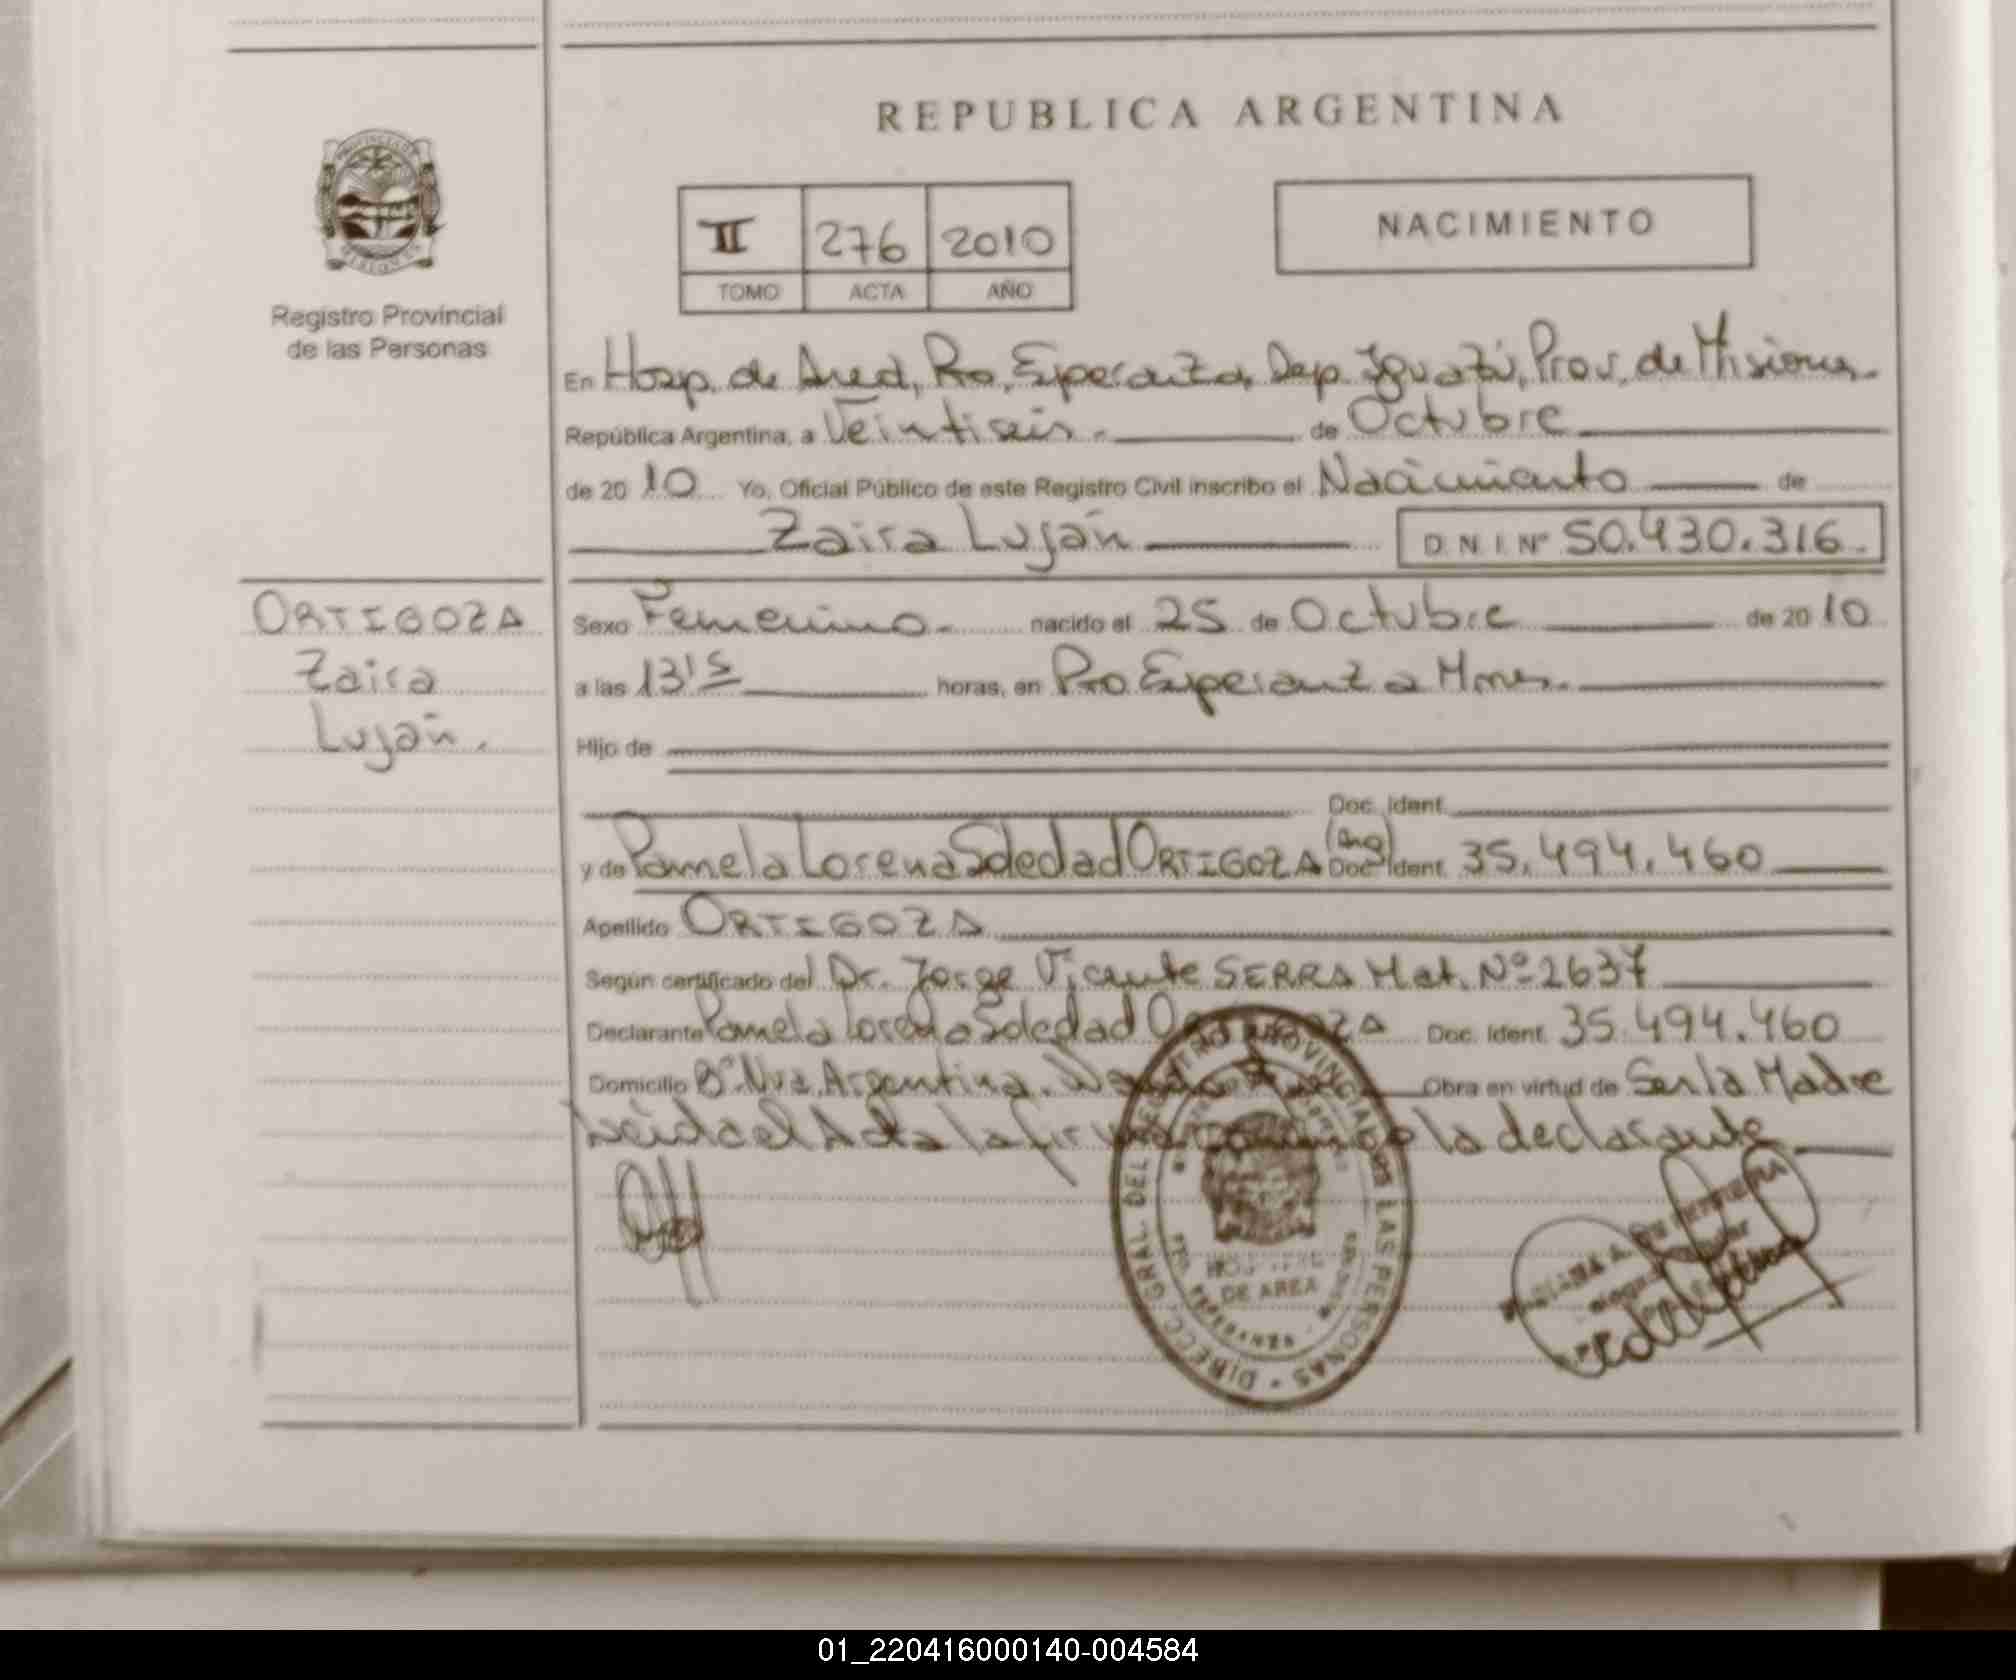 REPUBLICA ARGENTINA
II 276 2010
TOMO ACTA AÑO
NACIMIENTO
Registro Provincial
de las Personas
En Hosp. de Area, Pto. Esperanza, Dep. Iguazú, Prov. de Misiones.
República Argentina, a Veintiseis. de Octubre
de 20 10 Yo, Oficial Público de este Registro Civil inscribo el Nacimiento de
Zaira Luján D.N.I. Nº 50.430.316.
ORTIGOZA
Zaira
Luján.
Sexo Femenino. nacido el 25 de Octubre de 20 10
a las 13'5 horas, en Pto. Esperanza Mnes.
Hijo de
Doc. Ident.
y de Pamela Lorena Soledad ORTIGOZA (Arg) Doc. Ident. 35.494.460
Apellido ORTIGOZA
Según certificado del Dr. Jorge Vicente SERRA Mat. Nº 2637
Declarante Pamela Lorena Soledad ORTIGOZA Doc. Ident. 35.494.460
Domicilio Bº Nva. Argentina. Obra en virtud de Ser la Madre
Leida el Acta la firma la declarante
DIRECC. GRAL. DEL REGISTRO PROVINCIAL DE LAS PERSONAS
HOSPITAL
DE AREA
PTO. ESPERANZA
01_220416000140-004584